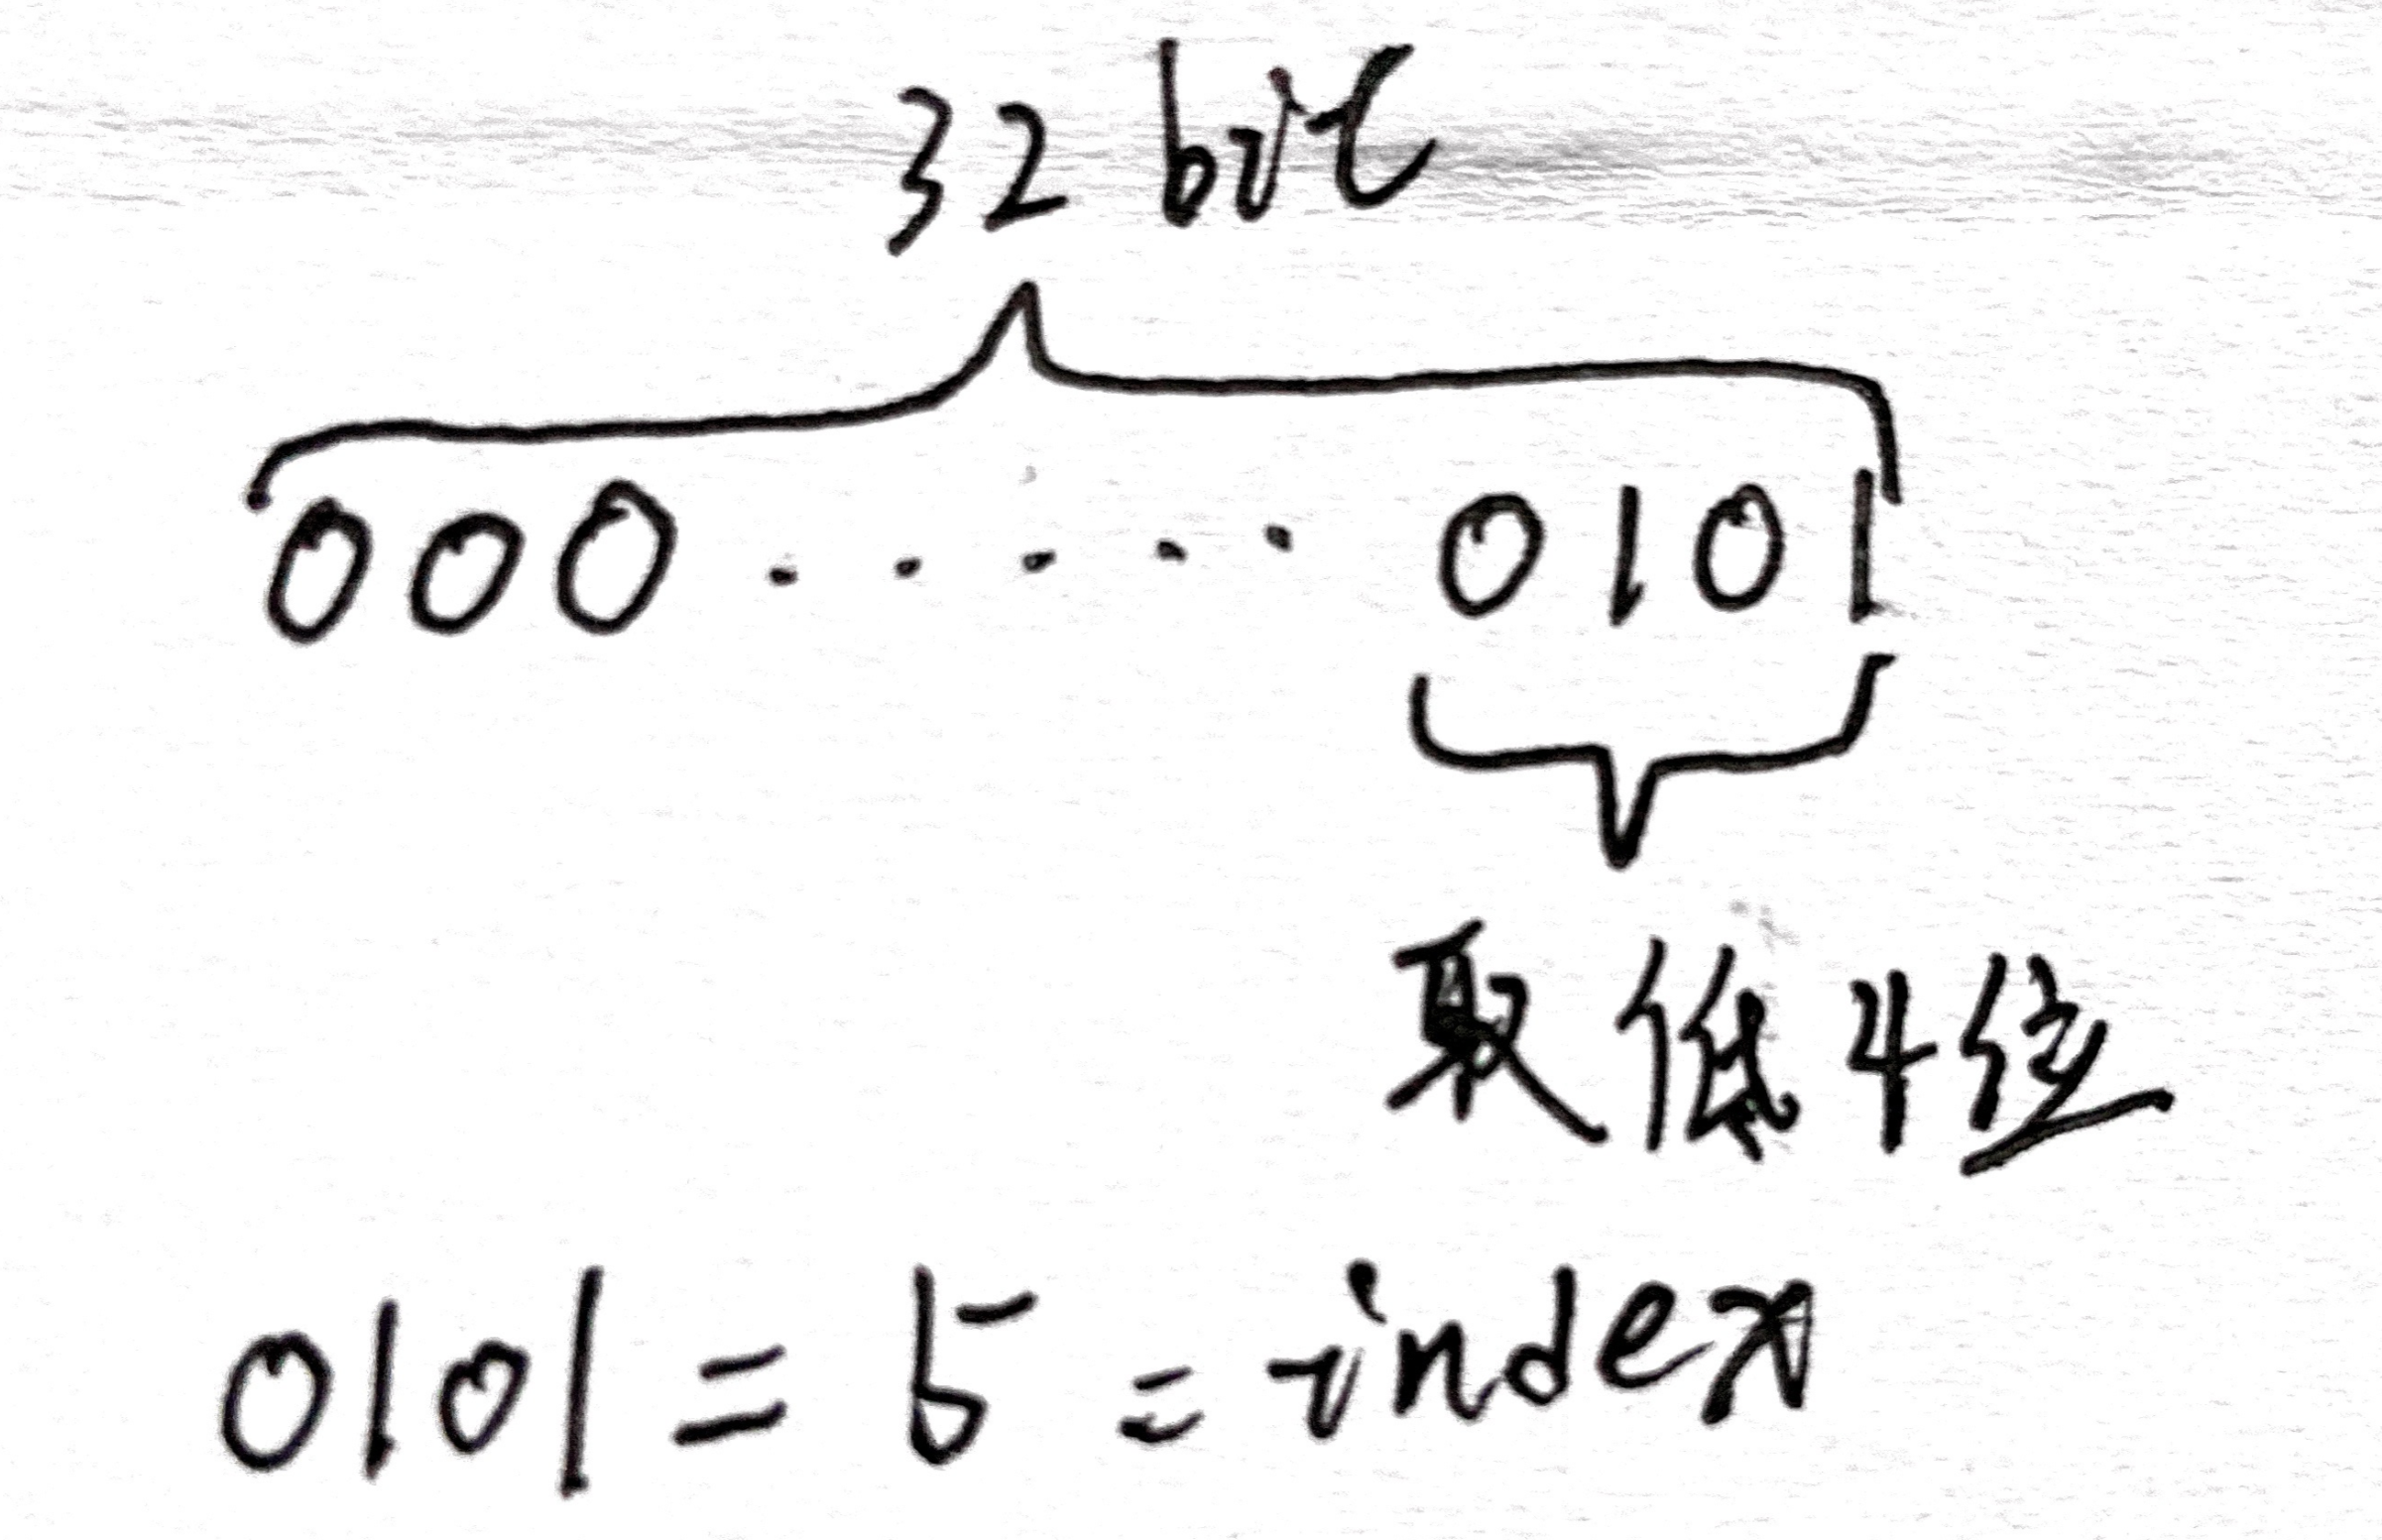 32 bit
000 ..... 0101
取低4位
0101 = 5 = index